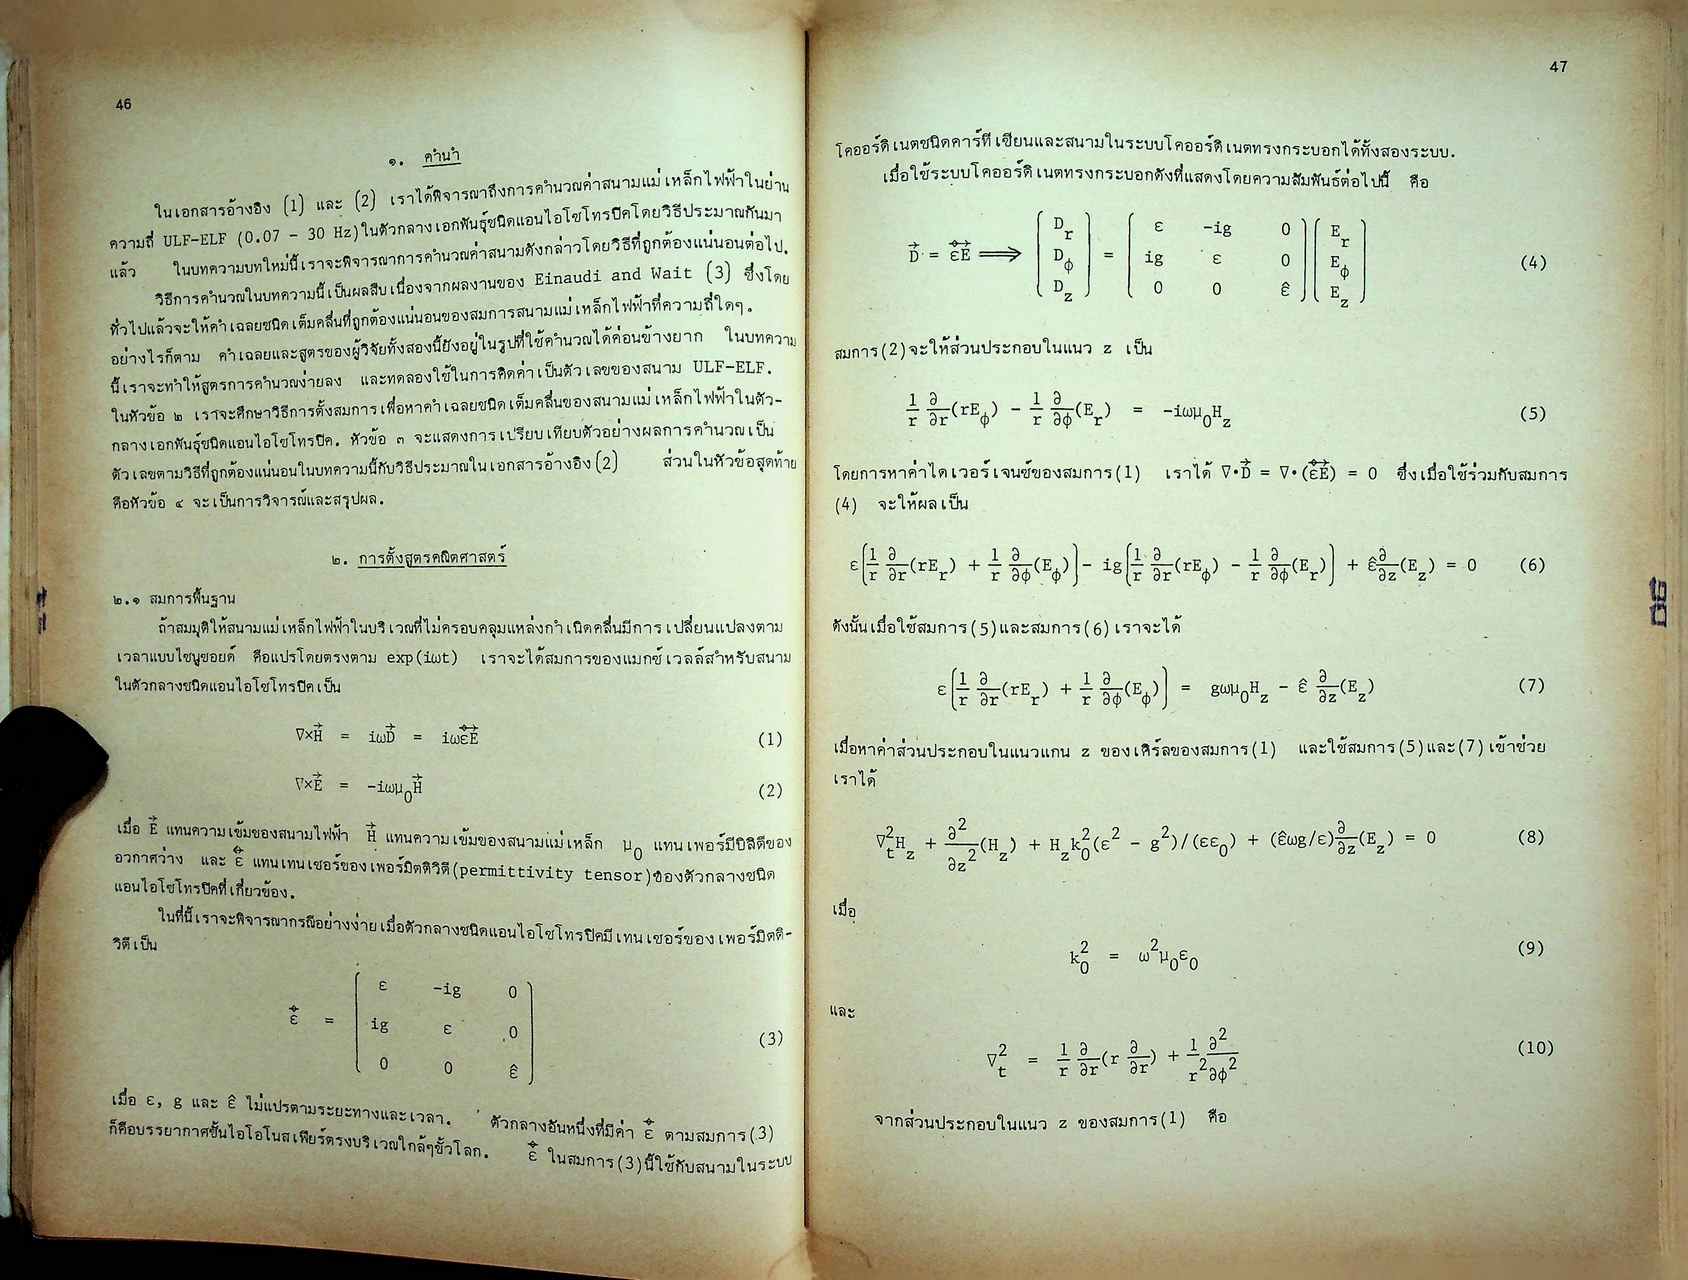 46
๑. คำนำ
ในเอกสารอ้างอิง (1) และ (2) เราได้พิจารณาถึงการคำนวณค่าสนามแม่เหล็กไฟฟ้าในย่าน
ความถี่ ULF-ELF (0.07 - 30 Hz) ในตัวกลางเอกพันธุ์ชนิดแอนไอโซโทรปิคโดยวิธีประมาณกันมา
แล้ว ในบทความบทใหม่นี้เราจะพิจารณาการคำนวณค่าสนามดังกล่าวโดยวิธีที่ถูกต้องแน่นอนต่อไป.
วิธีการคำนวณในบทความนี้เป็นผลสืบเนื่องจากผลงานของ Einaudi and Wait (3) ซึ่งโดย
ทั่วไปแล้วจะให้คำเฉลยชนิดเต็มคลื่นที่ถูกต้องแน่นอนของสมการสนามแม่เหล็กไฟฟ้าที่ความถี่ใดๆ.
อย่างไรก็ตาม คำเฉลยและสูตรของผู้วิจัยทั้งสองนี้ยังอยู่ในรูปที่ใช้คำนวณได้ค่อนข้างยาก ในบทความ
นี้เราจะทำให้สูตรการคำนวณง่ายลง และทดลองใช้ในการคิดค่าเป็นตัวเลขของสนาม ULF-ELF.
ในหัวข้อ ๒ เราจะศึกษาวิธีการตั้งสมการเพื่อหาคำเฉลยชนิดเต็มคลื่นของสนามแม่เหล็กไฟฟ้าในตัว-
กลางเอกพันธุ์ชนิดแอนไอโซโทรปิค. หัวข้อ ๓ จะแสดงการเปรียบเทียบตัวอย่างผลการคำนวณเป็น
ตัวเลขตามวิธีที่ถูกต้องแน่นอนในบทความนี้กับวิธีประมาณในเอกสารอ้างอิง (2) ส่วนในหัวข้อสุดท้าย
คือหัวข้อ ๔ จะเป็นการวิจารณ์และสรุปผล.
๒. การตั้งสูตรคณิตศาสตร์
๒.๑ สมการพื้นฐาน
ถ้าสมมุติให้สนามแม่เหล็กไฟฟ้าในบริเวณที่ไม่ครอบคลุมแหล่งกำเนิดคลื่นมีการเปลี่ยนแปลงตาม
เวลาแบบไซนูซอยด์ คือแปรโดยตรงตาม exp(iωt) เราจะได้สมการของแมกซ์เวลล์สำหรับสนาม
ในตัวกลางชนิดแอนไอโซโทรปิคเป็น
∇×H⃗ = iωD⃗ = iωε⃡E⃗ (1)
∇×E⃗ = -iωμ₀H⃗ (2)
เมื่อ E⃗ แทนความเข้มของสนามไฟฟ้า H⃗ แทนความเข้มของสนามแม่เหล็ก μ₀ แทนเพอร์มีบิลิตีของ
อวกาศว่าง และ ε⃡ แทนเทนเซอร์ของเพอร์มิตติวิตี(permittivity tensor)ของตัวกลางชนิด
แอนไอโซโทรปิคที่เกี่ยวข้อง.
ในที่นี้เราจะพิจารณากรณีอย่างง่ายเมื่อตัวกลางชนิดแอนไอโซโทรปิคมีเทนเซอร์ของเพอร์มิตติ-
วิตีเป็น
ε -ig 0
ε⃡ = ig ε 0 (3)
0 0 ε̂
เมื่อ ε, g และ ε̂ ไม่แปรตามระยะทางและเวลา. ตัวกลางอันหนึ่งที่มีค่า ε⃡ ตามสมการ(3)
ก็คือบรรยากาศชั้นไอโอโนสเฟียร์ตรงบริเวณใกล้ๆขั้วโลก. ε⃡ ในสมการ(3)นี้ใช้กับสนามในระบบ
47
โคออร์ดิเนตชนิดคาร์ทีเซียนและสนามในระบบโคออร์ดิเนตทรงกระบอกได้ทั้งสองระบบ.
เมื่อใช้ระบบโคออร์ดิเนตทรงกระบอกดังที่แสดงโดยความสัมพันธ์ต่อไปนี้ คือ
D_r ε -ig 0 E_r
D⃗ = ε⃡E⃗ ⟹ D_ϕ = ig ε 0 E_ϕ (4)
D_z 0 0 ε̂ E_z
สมการ(2)จะให้ส่วนประกอบในแนว z เป็น
1/r ∂/∂r(rE_ϕ) - 1/r ∂/∂ϕ(E_r) = -iωμ₀H_z (5)
โดยการหาค่าไดเวอร์เจนซ์ของสมการ(1) เราได้ ∇·D⃗ = ∇·(ε⃡E⃗) = 0 ซึ่งเมื่อใช้ร่วมกับสมการ
(4) จะให้ผลเป็น
ε[1/r ∂/∂r(rE_r) + 1/r ∂/∂ϕ(E_ϕ)] - ig[1/r ∂/∂r(rE_ϕ) - 1/r ∂/∂ϕ(E_r)] + ε̂∂/∂z(E_z) = 0 (6)
ดังนั้นเมื่อใช้สมการ(5)และสมการ(6)เราจะได้
ε[1/r ∂/∂r(rE_r) + 1/r ∂/∂ϕ(E_ϕ)] = gωμ₀H_z - ε̂ ∂/∂z(E_z) (7)
เมื่อหาค่าส่วนประกอบในแนวแกน z ของเคิร์ลของสมการ(1) และใช้สมการ(5)และ(7)เข้าช่วย
เราได้
∇_t²H_z + ∂²/∂z²(H_z) + H_z k₀²(ε² - g²)/(εε₀) + (ε̂ωg/ε)∂/∂z(E_z) = 0 (8)
เมื่อ
k₀² = ω²μ₀ε₀ (9)
และ
∇_t² = 1/r ∂/∂r(r ∂/∂r) + 1/r² ∂²/∂ϕ² (10)
จากส่วนประกอบในแนว z ของสมการ(1) คือ